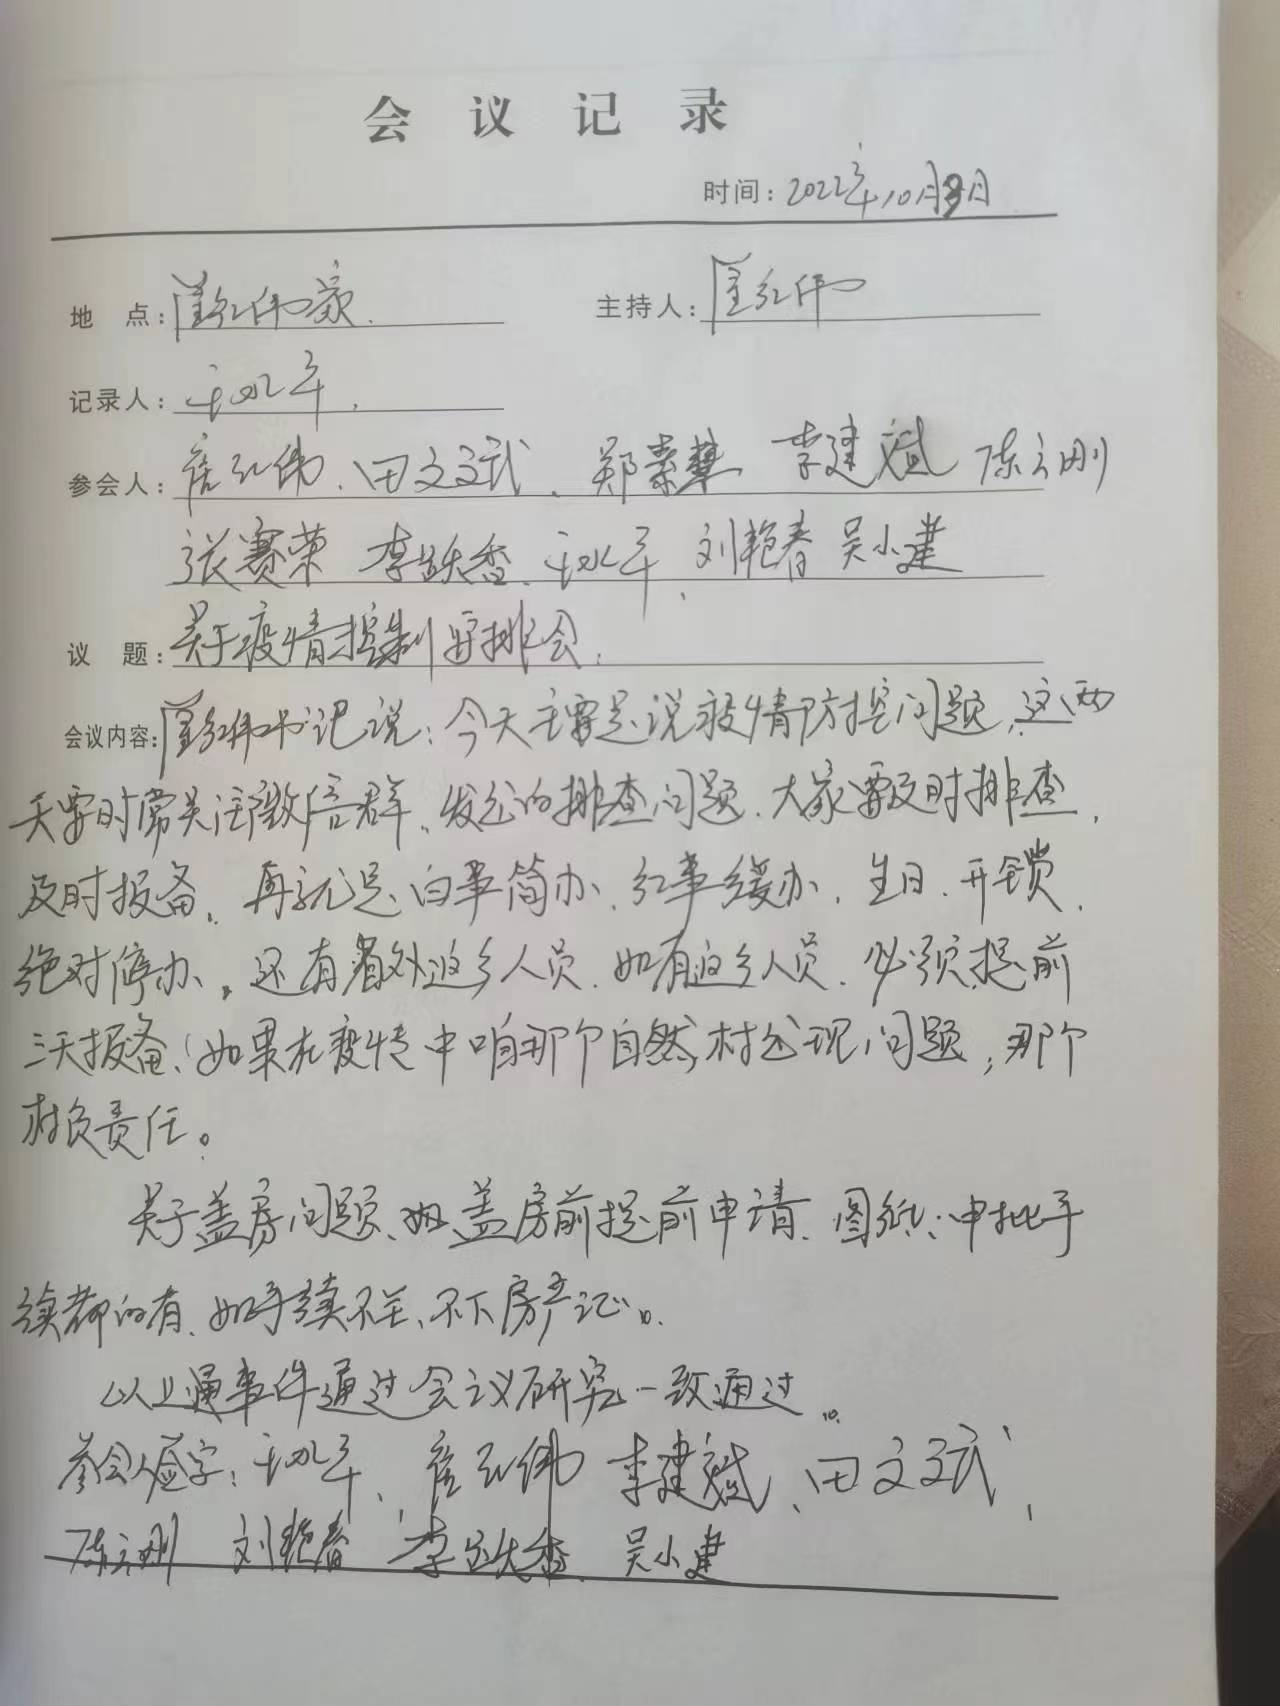 会议记录
时间：2022年10月9日
地 点：崔红伟家. 主持人：崔红伟
记录人：
参会人：崔红伟、田文武、郑素攀 李建斌 陈云刚
张赛荣 李跃香、 刘艳春 吴小建
议 题：关于疫情控制安排会：
会议内容：崔红伟书记说：今天主要是说疫情防控问题，这两
天要时常关注微信群、发出的排查问题、大家要及时排查，
及时报备。再就是白事简办、红事缓办，生日、开锁，
绝对停办。还有省外返乡人员、如有返乡人员、必须提前
三天报备、如果在疫情中咱那个自然村出现问题，那个
村负责任。
关于盖房问题、如盖房前提前申请、图纸、申批手
续都的有、如手续不全、不下房产证。
以上通事件通过会议研究一致通过。
参会人签字： 崔红伟 李建斌、田文武、
陈云刚 刘艳春 李跃香、 吴小建